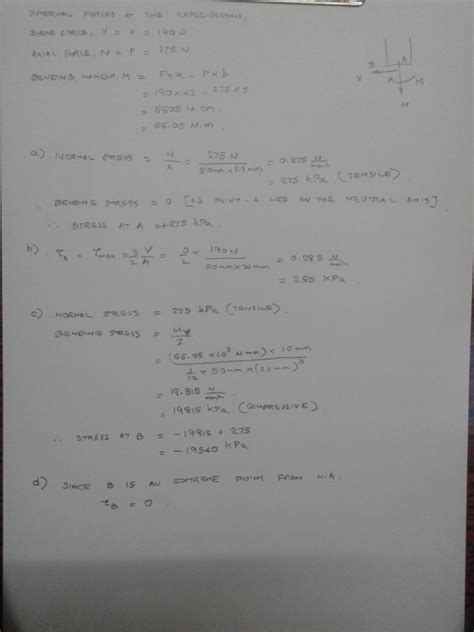 INTERNAL FORCES AT THE CROSS-SECTION,
SHEAR FORCE, V = F = 190 N
AXIAL FORCE, N = P = 275 N
BENDING MOMENT, M = F×a - P×b
= 190×42 - 275×5
= 6605 N.cm
= 66.05 N.m.
B A
V M
N
a) NORMAL STRESS = N/A = 275 N / 50mm×20mm = 0.275 N/mm²
= 275 kPa (TENSILE)
BENDING STRESS = 0 [AS POINT-A LIES ON THE NEUTRAL AXIS]
∴ STRESS AT A = +275 kPa.
b) τA = τmax = 3/2 V/A = 3/2 × 190 N / 50mm×20mm = 0.285 N/mm²
= 285 kPa
c) NORMAL STRESS = 275 kPa (TENSILE)
BENDING STRESS = My/I
= (66.05 ×10³ N.mm) × 10mm / 1/12 × 50mm×(20mm)³
= 19.815 N/mm²
= 19815 kPa (COMPRESSIVE)
∴ STRESS AT B = -19815 + 275
= -19540 kPa
d) SINCE B IS AN EXTREME POINT FROM N.A.
τB = 0